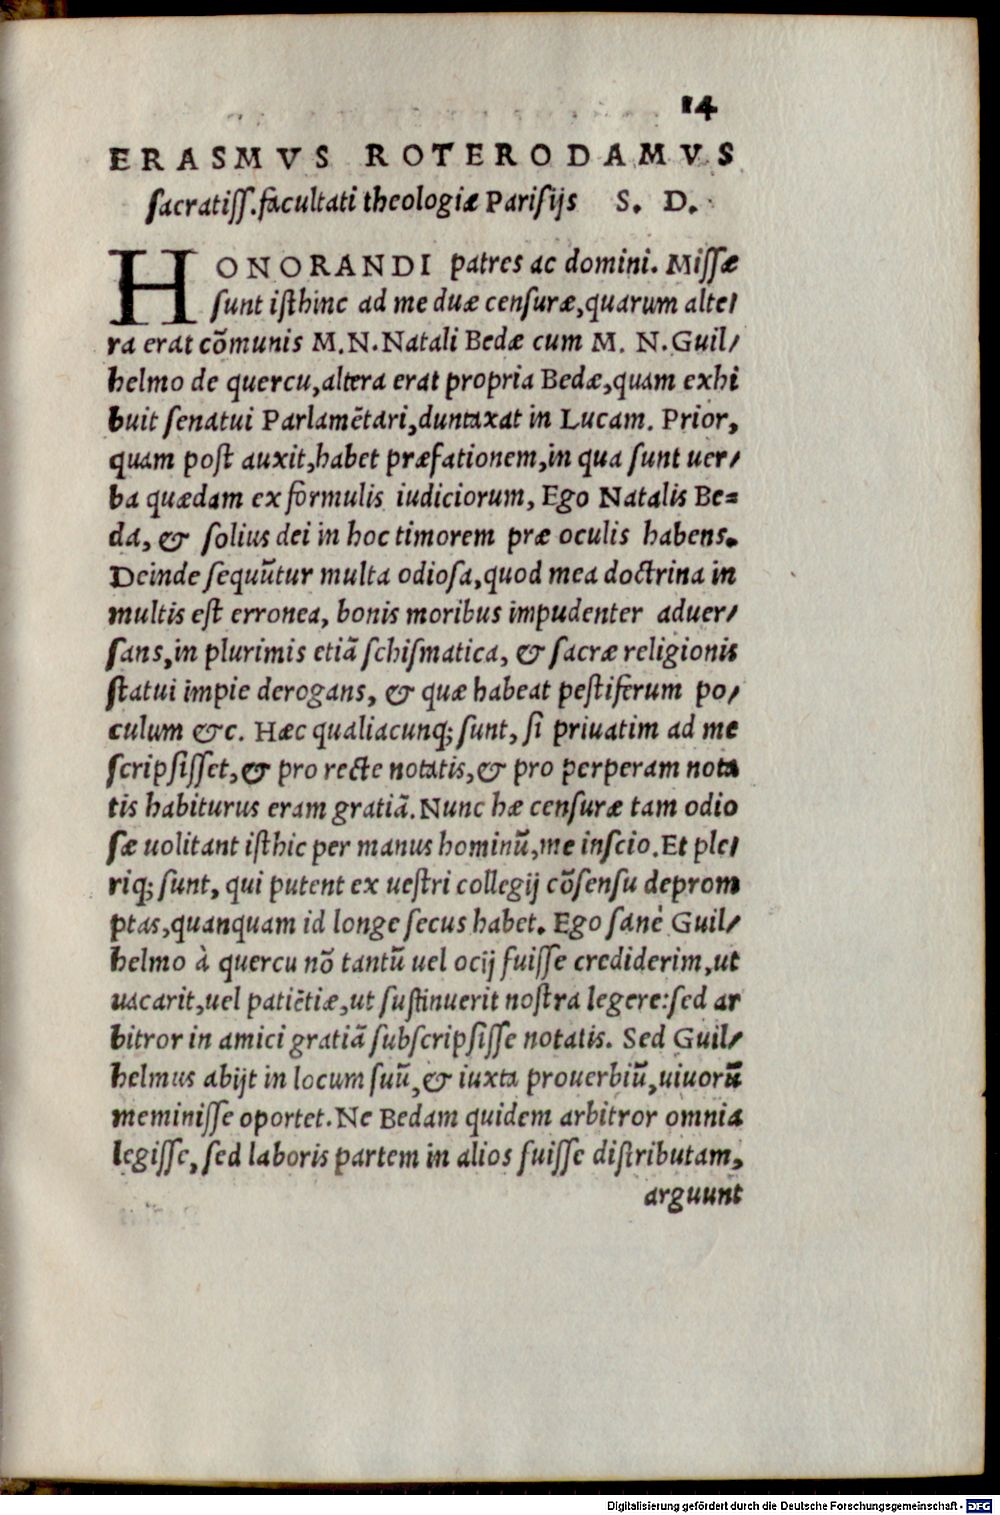 14
ERASMVS ROTERODAMVS
sacratiss. facultati theologiæ Parisijs S. D.
HONORANDI patres ac domini. Missæ
sunt isthinc ad me duæ censuræ, quarum alte/
ra erat cõmunis M. N. Natali Bedæ cum M. N. Guil/
helmo de quercu, altera erat propria Bedæ, quam exhi
buit senatui Parlamẽtari, duntaxat in Lucam. Prior,
quam post auxit, habet præfationem, in qua sunt uer/
ba quædam ex formulis iudiciorum, Ego Natalis Be=
da, & solius dei in hoc timorem præ oculis habens.
Deinde sequũtur multa odiosa, quod mea doctrina in
multis est erronea, bonis moribus impudenter aduer/
sans, in plurimis etiã schismatica, & sacræ religionis
statui impie derogans, & quæ habeat pestiferum po/
culum &c. Hæc qualiacunq; sunt, si priuatim ad me
scripsisset, & pro recte notatis, & pro perperam nota
tis habiturus eram gratiã. Nunc hæ censuræ tam odio
sæ uolitant isthic per manus hominũ, me inscio. Et ple/
riq; sunt, qui putent ex uestri collegij cõsensu deprom
ptas, quanquam id longe secus habet. Ego sanè Guil/
helmo à quercu nõ tantũ uel ocij fuisse crediderim, ut
uacarit, uel patiẽtiæ, ut sustinuerit nostra legere: sed ar
bitror in amici gratiã subscripsisse notatis. Sed Guil/
helmus abijt in locum suũ, & iuxta prouerbiũ, uiuorũ
meminisse oportet. Ne Bedam quidem arbitror omnia
legisse, sed laboris partem in alios fuisse distributam,
arguunt
Digitalisierung gefördert durch die Deutsche Forschungsgemeinschaft - DFG